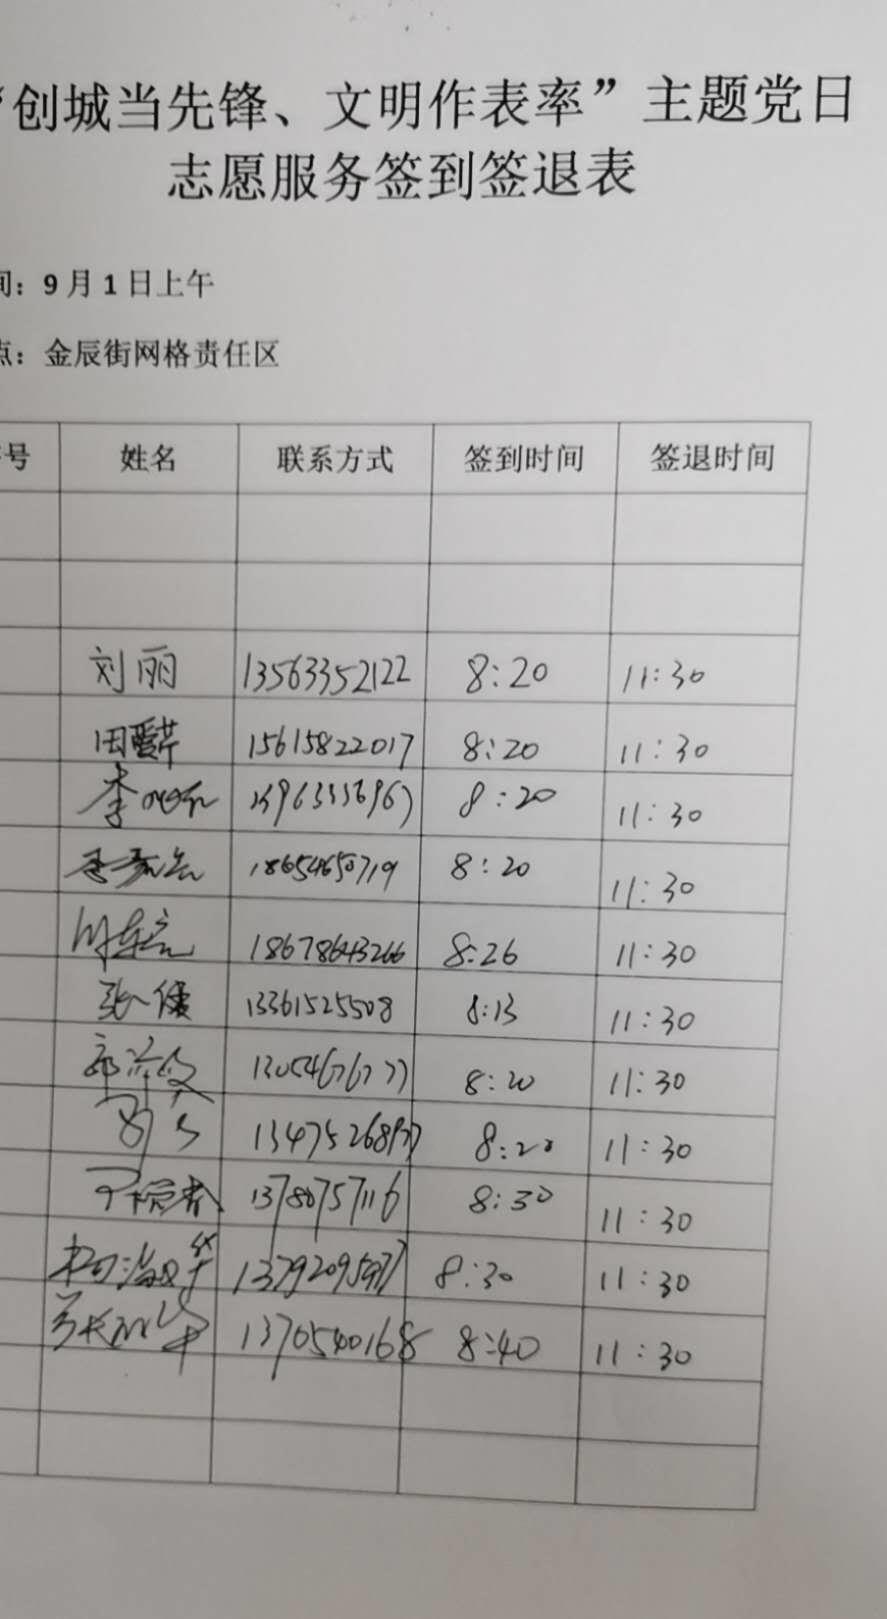 “创城当先锋、文明作表率”主题党日
志愿服务签到签退表
间：9月1日上午
点：金辰街网格责任区
号 姓名 联系方式 签到时间 签退时间
刘丽 13563352122 8:20 11:30
田爱芹 15615822017 8:20 11:30
李 8:20 11:30
18654650719 8:20 11:30
18678643266 8:26 11:30
张健 13361525508 8:13 11:30
8:20 11:30
8:20 11:30
13780757116 8:30 11:30
8:30 11:30
1370540168 8:40 11:30